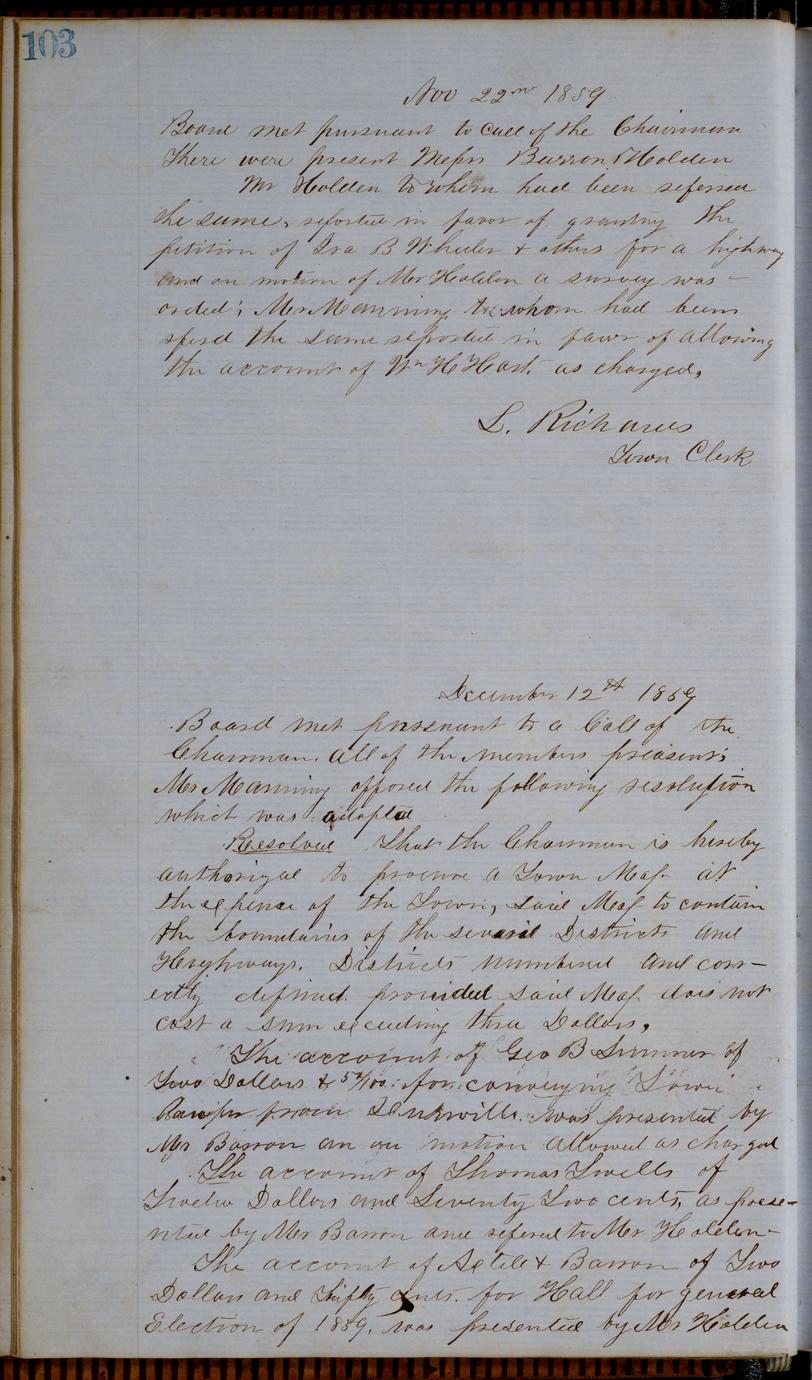 103
Nov 22nd 1859
Board met pursuant to call of the Chairman
There were present Messrs Barron & Holden
Mr Holden to whom had been referred
the same, reported in favor of granting the
petition of Ira B Wheeler & others for a highway
and on motion of Mr Holden a survey was
orded; Mr Manning to whom had been
referd the same reported in favor of allowing
the account of Wm H Hart. as charged,
L. Richards
Town Clerk
December 12th 1859
Board met pursuant to a Call of the
Chairman. all of the members present;
Mr Manning offered the following resolution
which was adopted
Resolved That the Chairman is hereby
authorized to procure a Town Map at
the expense of the Town, said Map to contain
the boundaries of the several Districts and
Highways. Districts numbered and corr-
ectly defined provided said Map does not
cost a sum exceeding three Dollars,
The account of Geo B Sumner of
Two Dollars & 50/100 for conveying Town
Pauper from was presented by
Mr Barron an on motion allowed as charged
The account of Thomas Twells of
Twelve Dollars and Seventy Two cents, as prese-
nted by Mr Barron and referd to Mr Holden
The account of & Barron of Two
Dollars and Fifty cents. for Hall for general
Election of 1859, was presented by Mr Holden